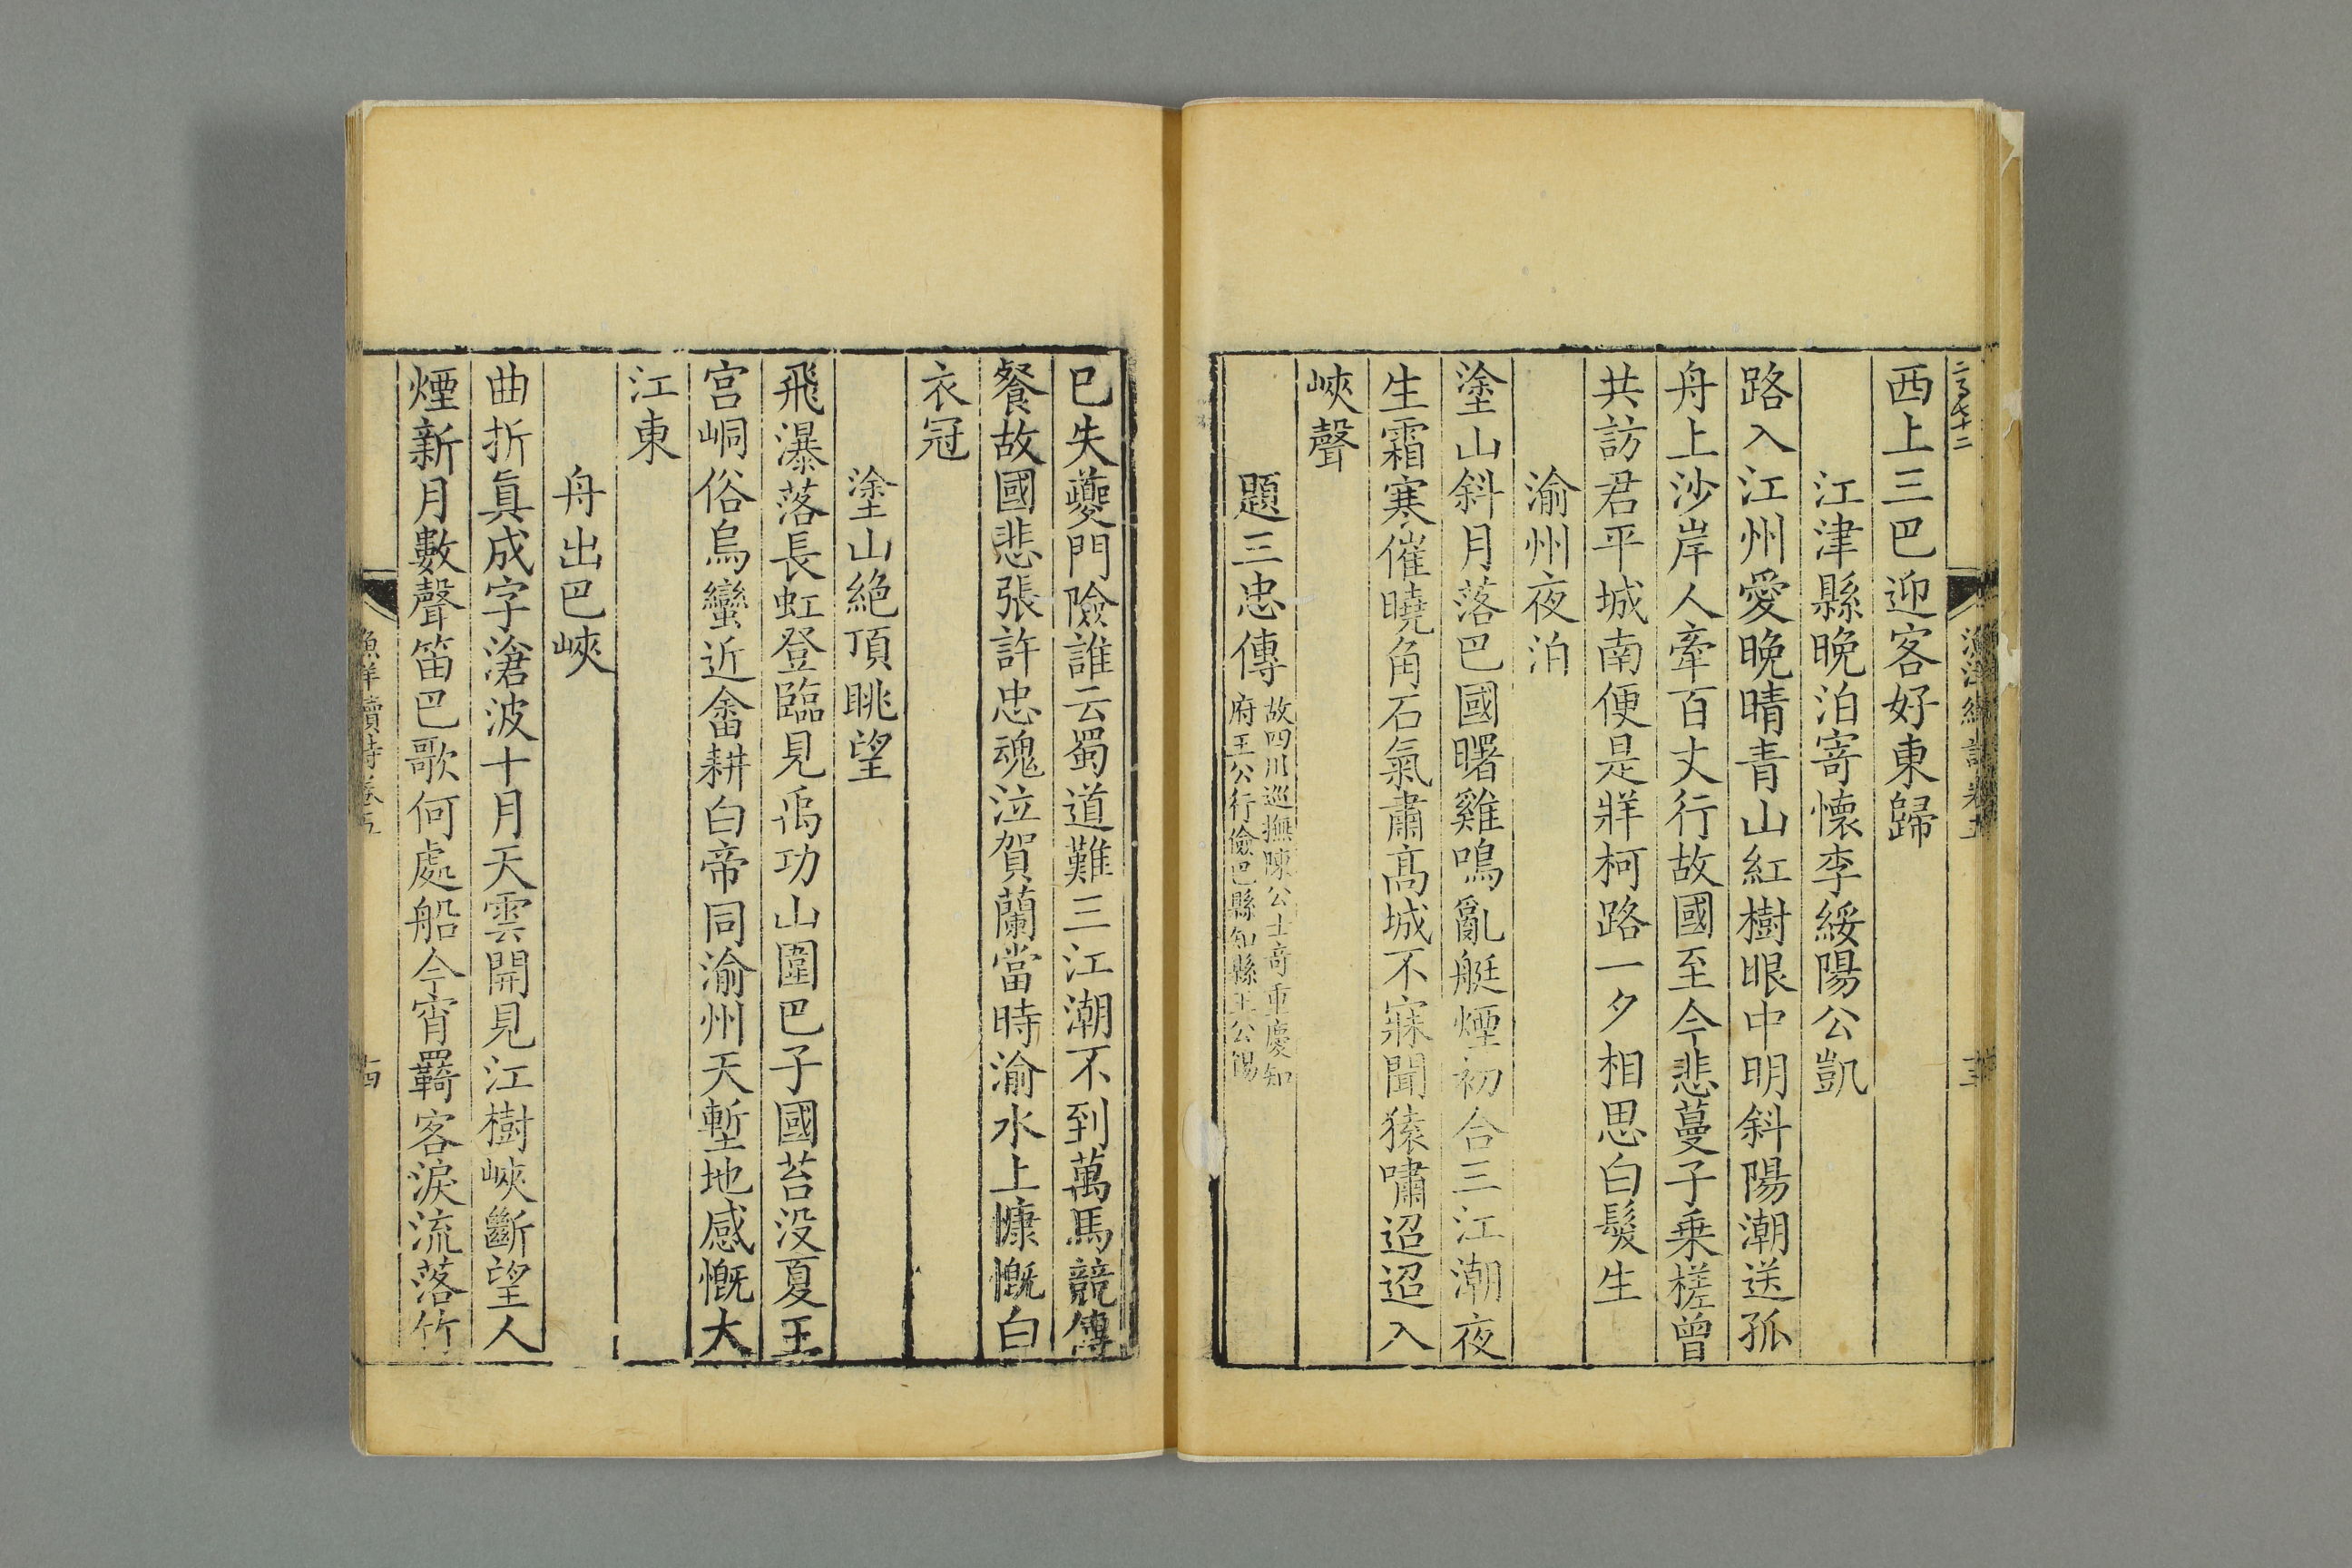 西上三巴迎客好東歸
江津縣晚泊寄懷李綏陽公凱
路入江州愛晚晴青山紅樹眼中明斜陽潮送孤
舟上沙岸人牽百丈行故國至今悲蔓子乘槎曾
共訪君平城南便是牂柯路一夕相思白髮生
渝州夜泊
塗山斜月落巴國曙雞鳴亂艇煙初合三江潮夜
生霜寒催曉角石氣肅高城不寐聞猿嘯迢迢入
峽聲
題三忠傳
故四川巡撫陳公士奇重慶知
府王公行儉巴縣知縣王公錫
已失夔門險誰云蜀道難三江潮不到萬馬競傳
餐故國悲張許忠魂泣賀蘭當時渝水上慷慨白
衣冠
塗山絶頂眺望
飛瀑落長虹登臨見禹功山圍巴子國苔没夏王
宮峒俗烏蠻近畬耕白帝同渝州天塹地感慨大
江東
舟出巴峽
曲折眞成字滄波十月天雲開見江樹峽斷望人
煙新月數聲笛巴歌何處船今宵羈客淚流落竹
漁洋續詩卷五
十四